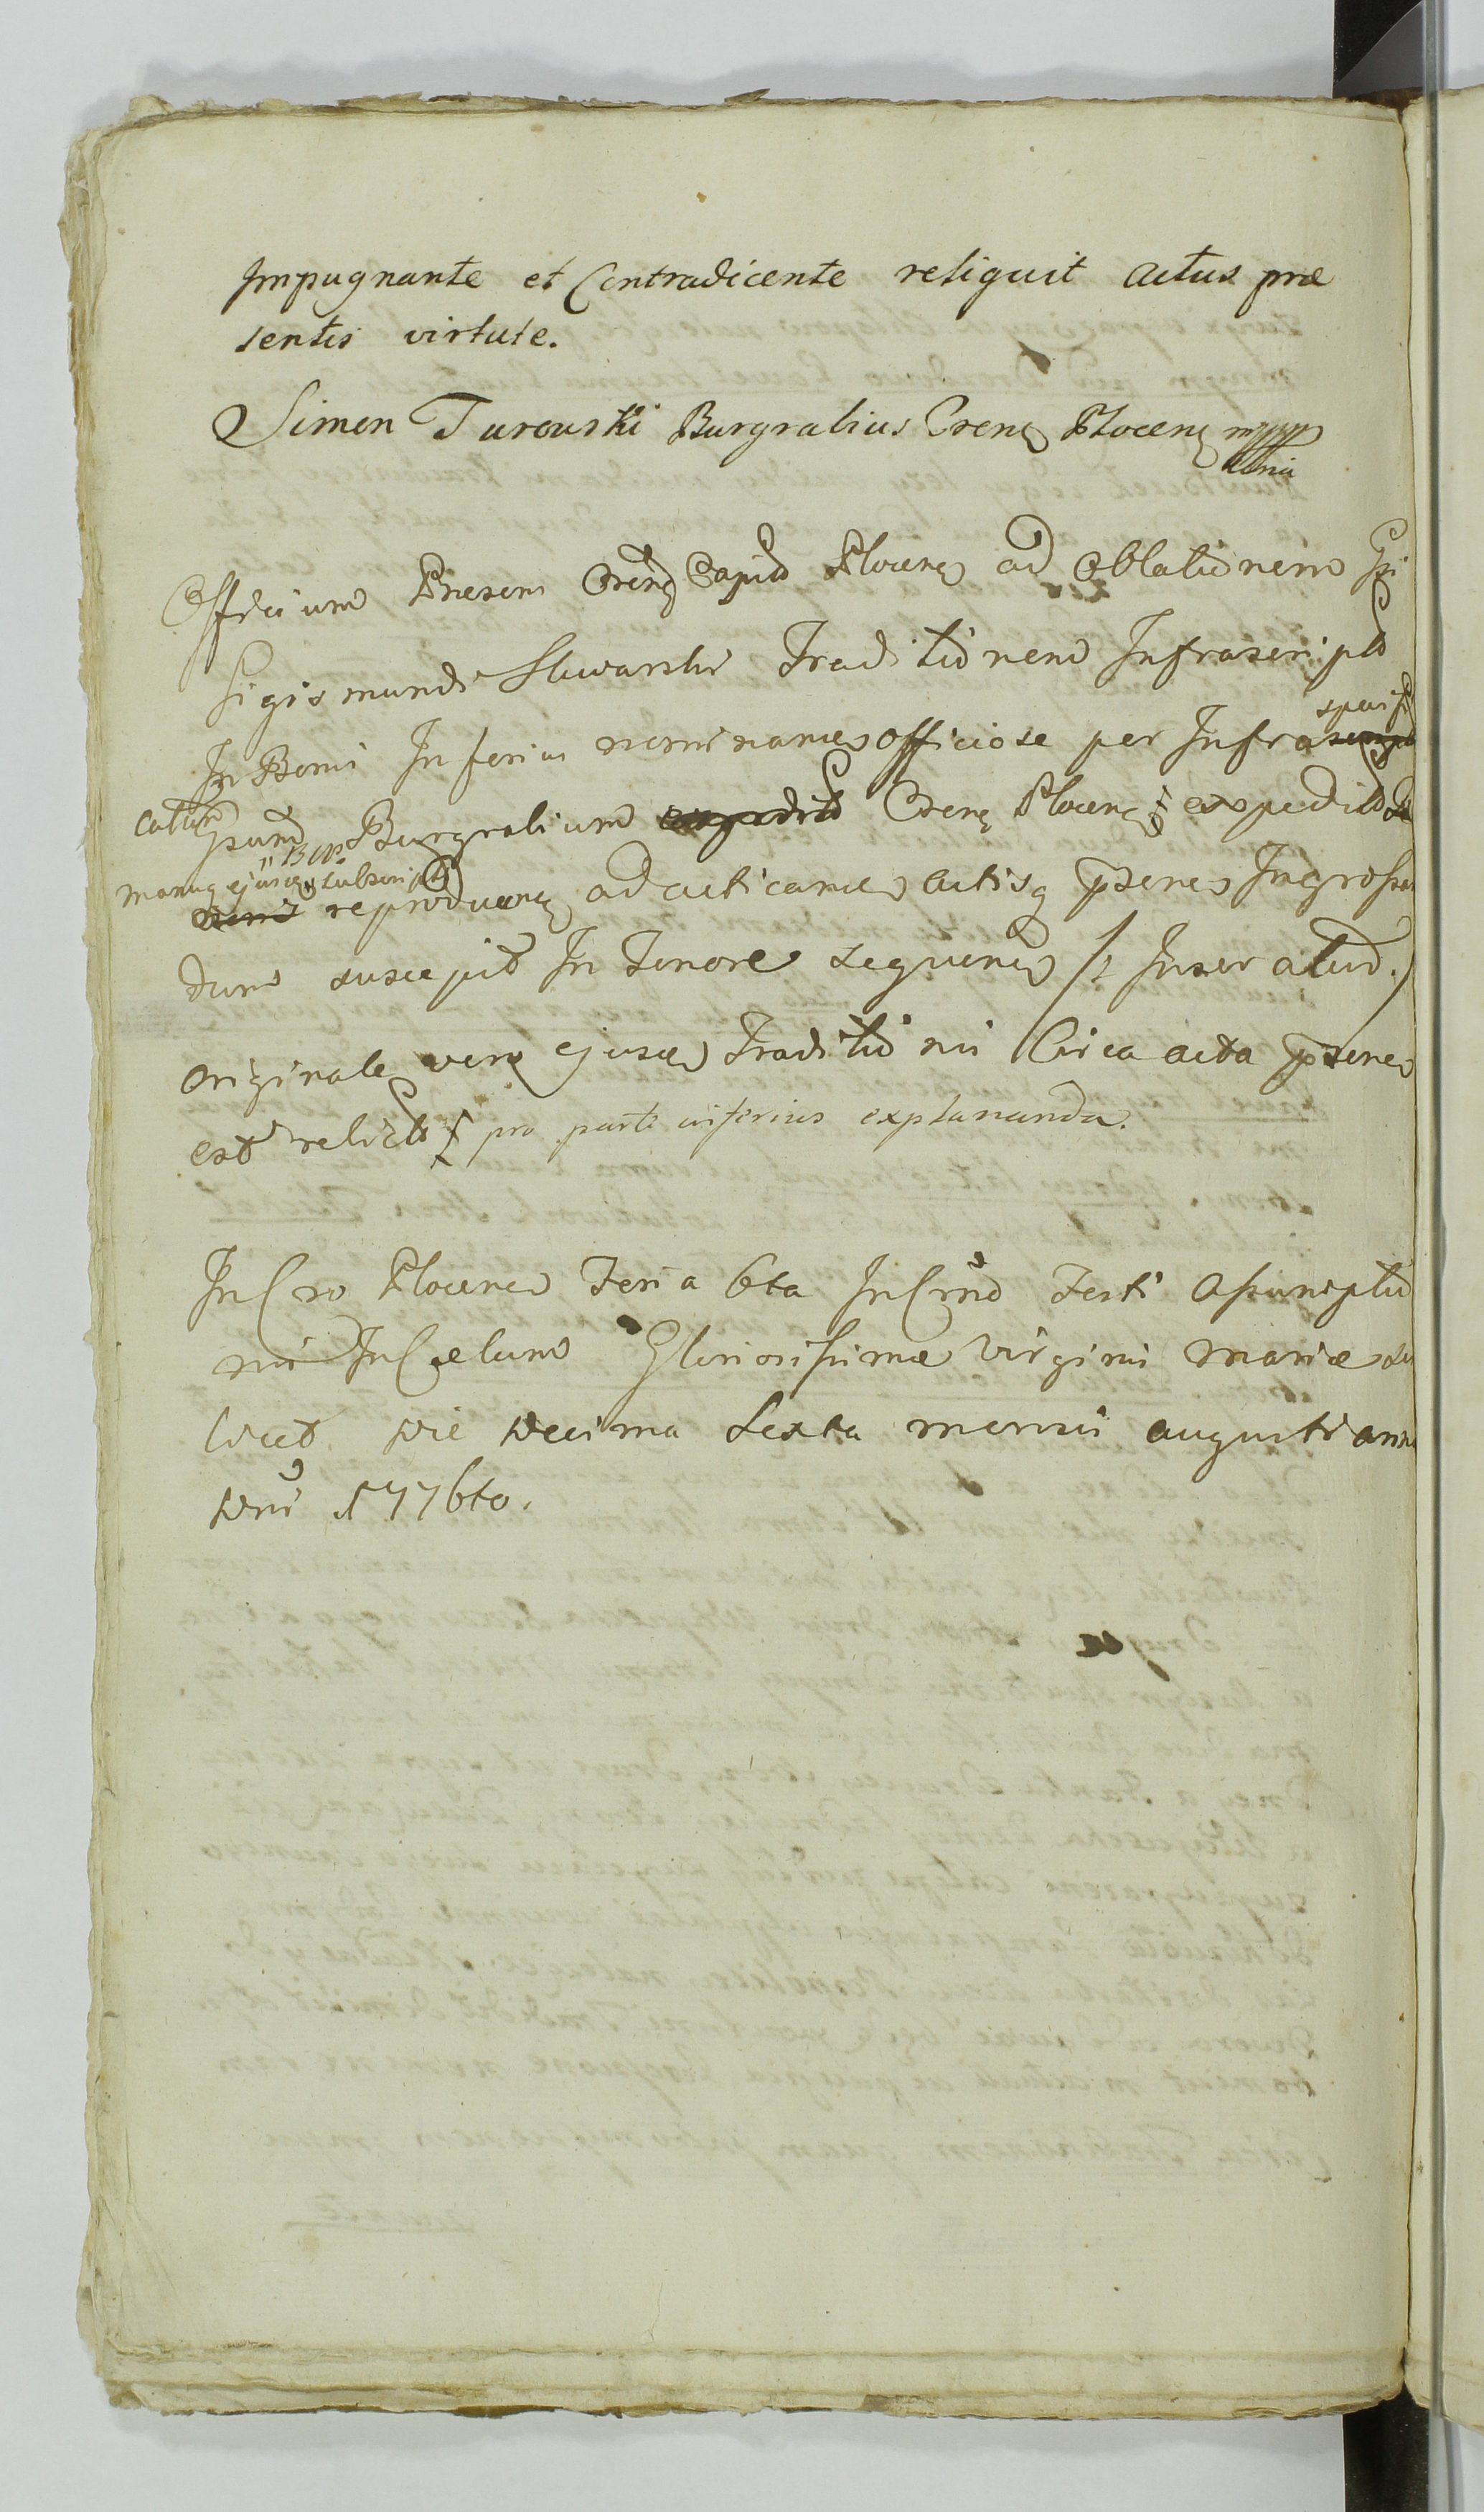 Impugnante et Contradicente reliquit actus præ
sentis virtute.
Simon Turowski Burgrabius Crenẽ Plocenẽ mppp
Officium Præsens Crenẽ Capit Plocenẽ ad Oblationem
Sigismundi Traditionem Infrascript
In Bonis Inferius nominaneñ officiose per Infra specifi
catum Gsum Burgrabium Crenẽ Plocenẽ expedit
manuq ejusd subscript reproducenẽ ad acticanẽ actisq psenẽ Ingrossan
dum suscepit In Tenore sequenẽ /: Inseratur :/
originale vero ejusd Traditionis Circa acta psenẽ
est relict pro parte inferius explananda.
In Cro Plocenẽ Feria 6ta In Cnõ Festi Assumptio
nis In Cælum Gloriosissimæ Virginis Mariæ sci
licet die decima sexta mensis augusti anno
Dni 1776to.